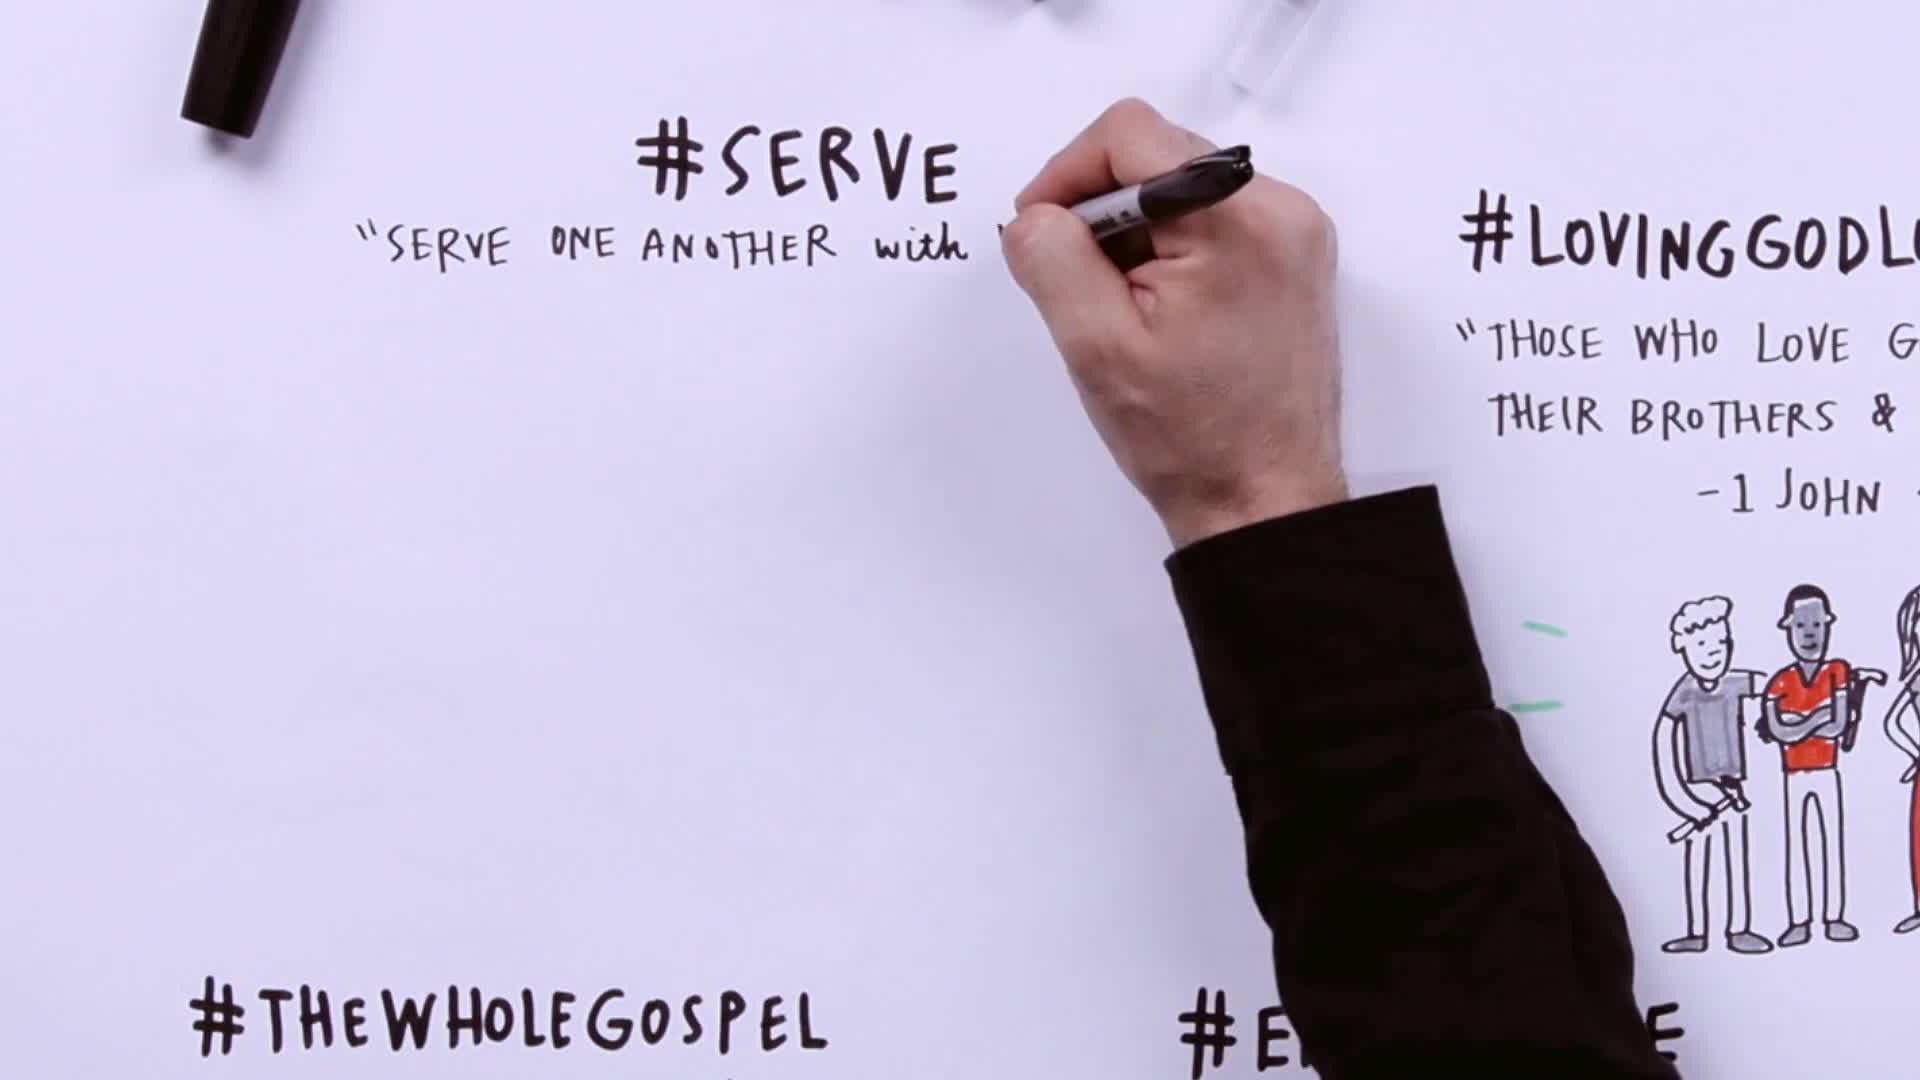 #SERVE
"SERVE ONE ANOTHER with
#LOVINGGODLO
"THOSE WHO LOVE G
THEIR BROTHERS &
-1 JOHN
#THEWHOLEGOSPEL